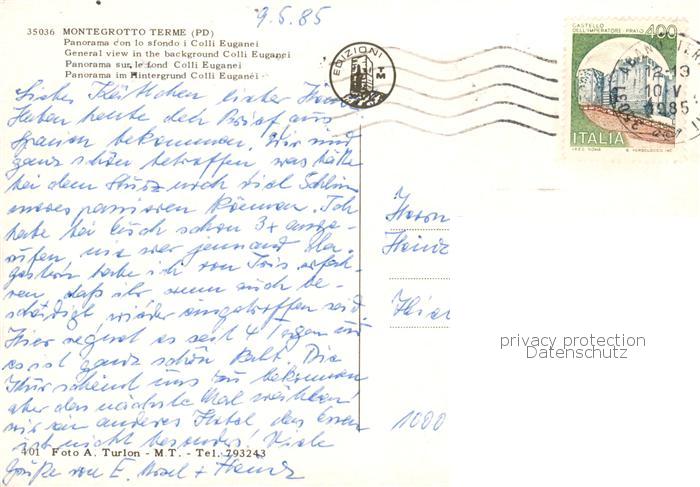 9.5.85
35036 MONTEGROTTO TERME (PD)
Panorama con lo sfondo i Colli Euganei
General view in the background Colli Euganei
Panorama sur le fond Colli Euganei
Panorama im Hintergrund Colli Euganei
EDIZIONI
TM
CASTELLO
DELL'IMPERATORE - PRATO
400
12-13
10 V
1985
ITALIA
Liebes Kättchen lieber
Haben heute den Brief aus
Spanien bekommen. Wir sind
ganz schön betroffen was hätte
bei dem Sturz noch viel Schlim
meres passieren können. Ich
habe bei Euch schon 3x ange-
rufen, nie war jemand da.
Gestern habe ich von Iris erfah-
ren, daß ihr wenn auch be-
schädigt wieder eingetroffen seid.
Hier regnet es seit 4 Tagen und
es ist ganz schön kalt. Die
Kur scheint uns zu bekommen
aber das nächste Mal wählen
wir ein anderes Hotel das Essen
ist nicht besonders! Viele
Grüße von E. +
401 Foto A. Turlon - M.T. - Tel. 793243
Herrn
Heinz
1000
privacy protection
Datenschutz